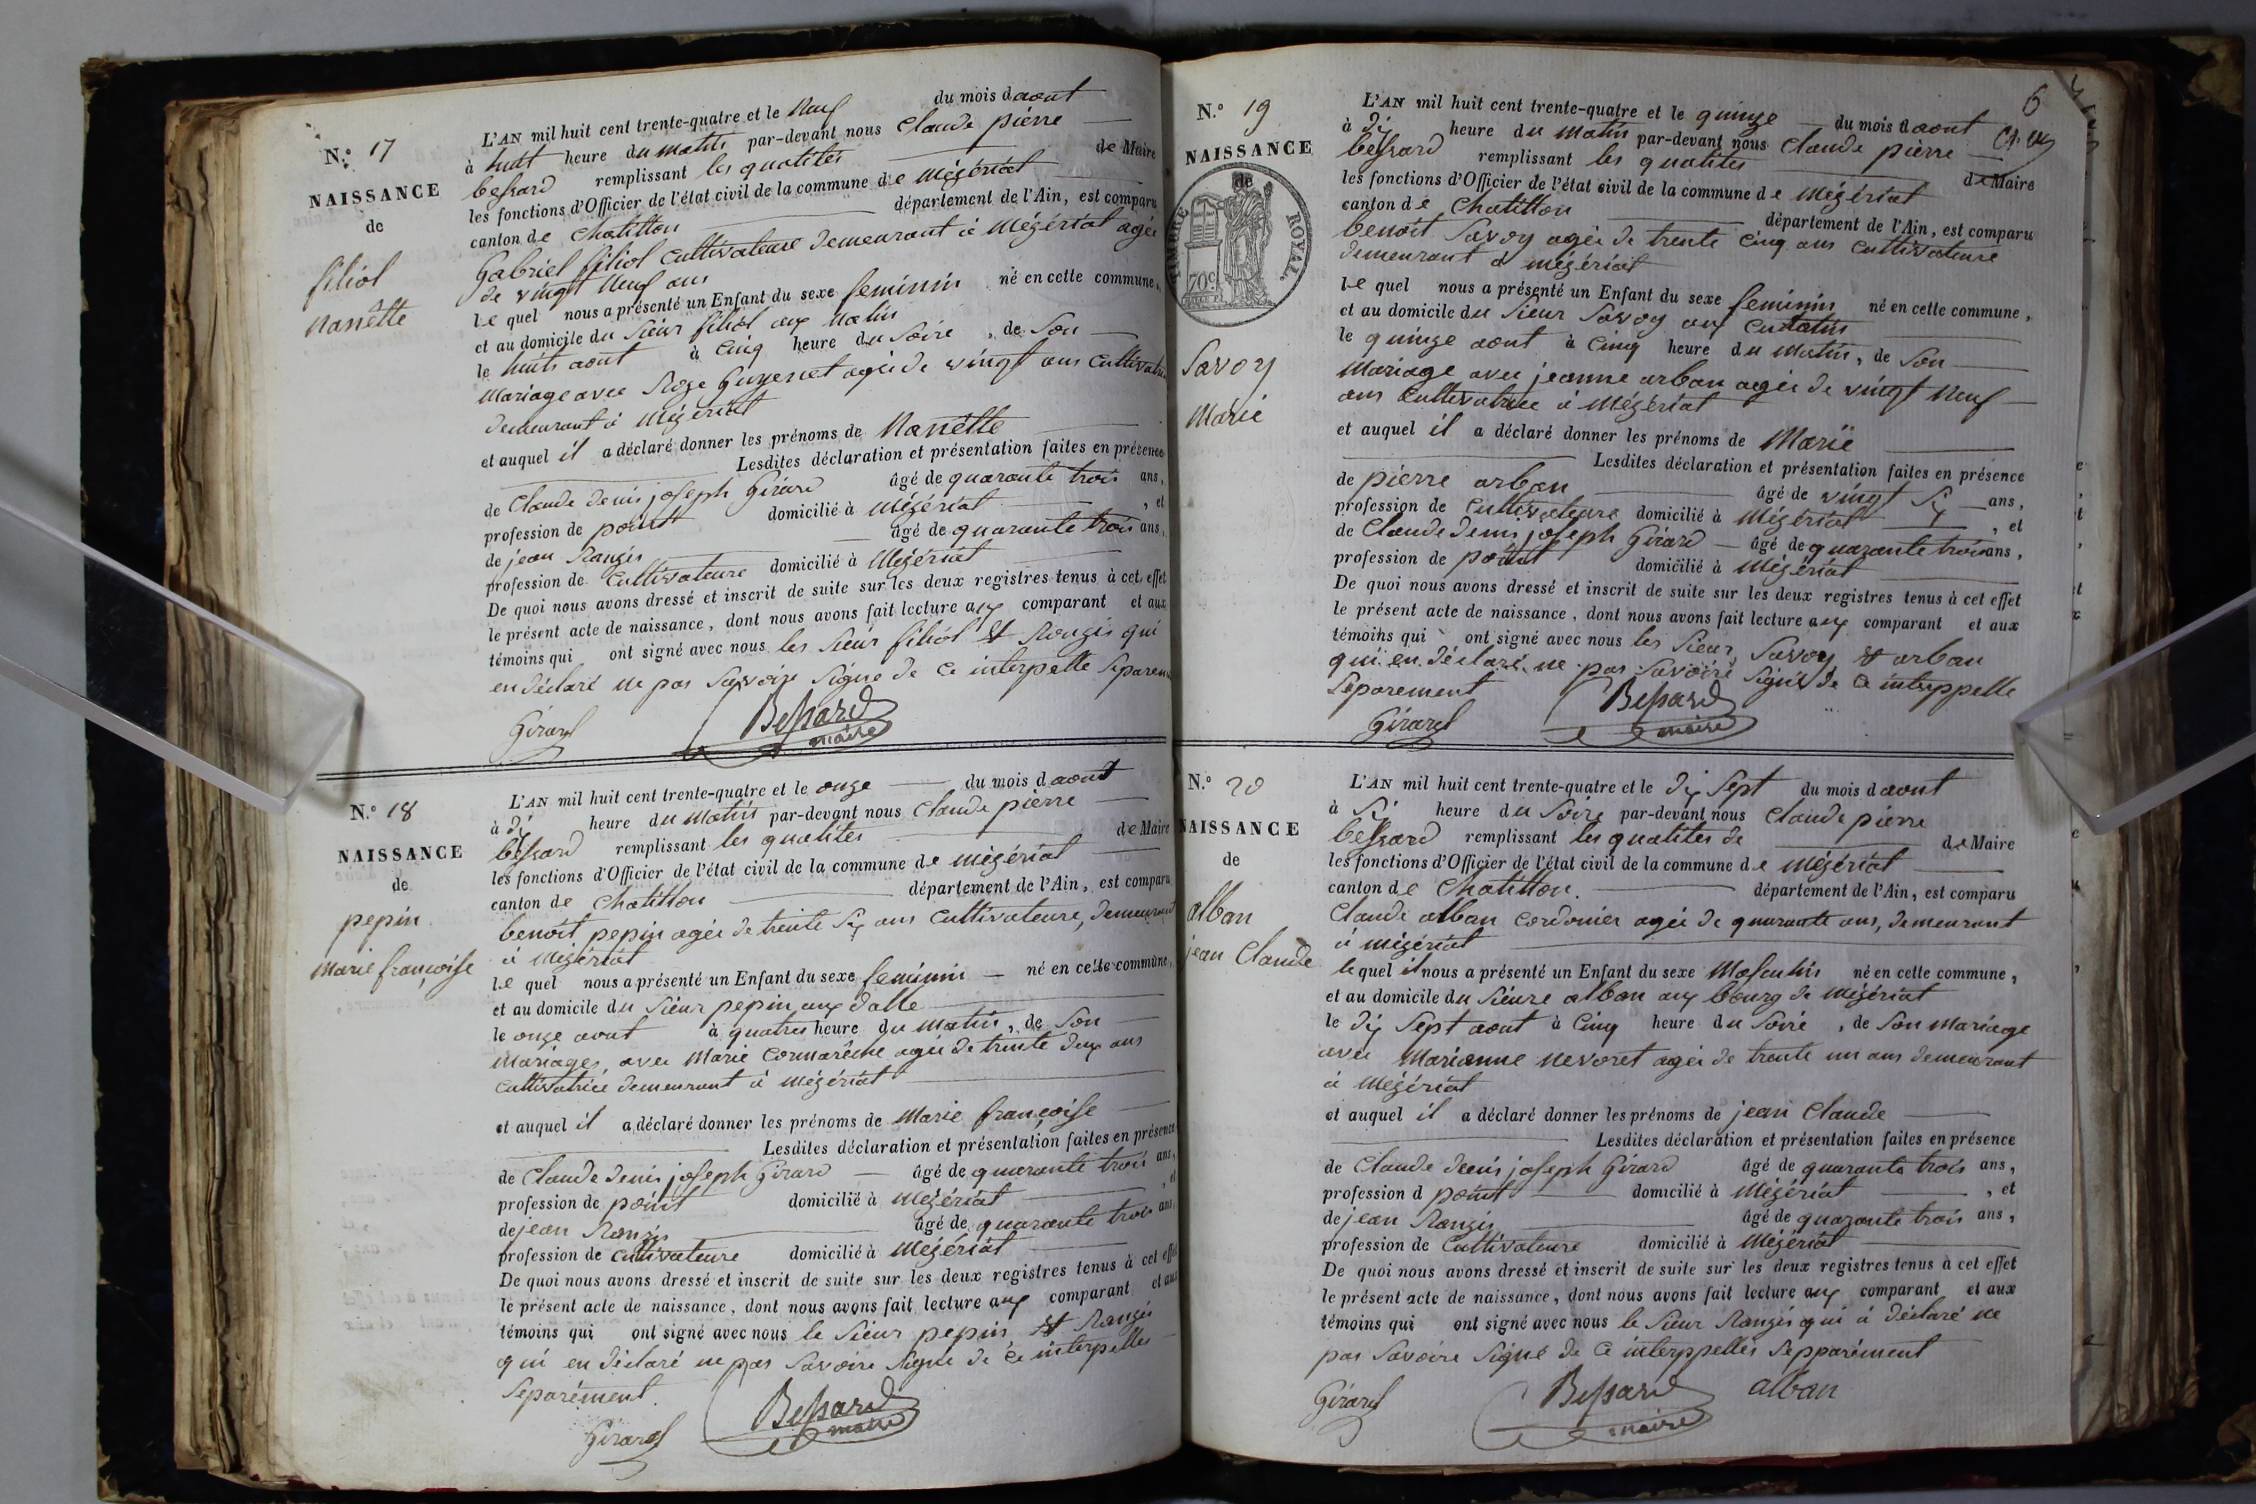 N.° 17
NAISSANCE
de
filiol
Nanétte
L'AN mil huit cent trente-quatre et le Neuf du mois d aout
à huit heure du matin par-devant nous Claude pierre
bessard remplissant les qualités de Maire
les fonctions d'Officier de l'état civil de la commune de Mézériat
canton de Chatillon département de l'Ain, est comparu
Gabriel filiol Cultivateure demeurant à Mézériat agée
de vingt Neuf ans
le quel nous a présenté un Enfant du sexe feminin né en cette commune,
et au domicile du Sieur filiol aux Malin
le huits aout à Cinq heure du Soire, de Son
Mariage avec Roze Guyenet agée de vingt ans Cultivatri
demeurant à Mézériat
et auquel il a déclaré donner les prénoms de Nanétte
Lesdites déclaration et présentation faites en présence
de Claude denis joseph Girard âgé de quarante trois ans,
profession de point domicilié à Mézériat, et
de jean Rangis âgé de quarante trois ans,
profession de Cultivateure domicilié à Mézériat
De quoi nous avons dressé et inscrit de suite sur les deux registres tenus à cet effet
le présent acte de naissance, dont nous avons fait lecture aux comparant et aux
témoins qui ont signé avec nous les Sieur filiol et Rangis qui
en déclaré ne pas Savoire Signe de Ce interpelle Séparem
Girard Bessard
maire
N.° 18
NAISSANCE
de
pepin
Marie françoise
L'AN mil huit cent trente-quatre et le onze du mois d aout
à dix heure du Matin par-devant nous Claude pierre
bessard remplissant les qualités de Maire
les fonctions d'Officier de l'état civil de la commune de Mézériat
canton de Chatillon département de l'Ain, est comparu
benoît pepin agée de trente Six ans Cultivateure, demeurant
à Mézériat
le quel nous a présenté un Enfant du sexe feminin né en cette commune,
et au domicile du Sieur pepin aux dalle
le onze aout à quatres heure du Matin, de Son
Mariages avec Marie Cormarêche agée de trente deux ans
Cultivatrice demeurant à Mézériat
et auquel il a déclaré donner les prénoms de Marie françoise
Lesdites déclaration et présentation faites en présence
de Claude denis joseph Girard âgé de quarante trois ans,
profession de point domicilié à Mézériat, et
de jean Rangis âgé de quarante trois ans,
profession de Cultivateure domicilié à Mézériat
De quoi nous avons dressé et inscrit de suite sur les deux registres tenus à cet effet
le présent acte de naissance, dont nous avons fait lecture aux comparant et aux
témoins qui ont signé avec nous le Sieur pepin et Rangis
qui en déclaré ne pas Savoire Signe de Ce interpelles
Séparément
Girard Bessard
maire
6
N.° 19
NAISSANCE
de
TIMBRE ROYAL
70c
Savoy
Marie
L'AN mil huit cent trente-quatre et le quinze du mois d aout
à dix heure du Matin par-devant nous Claude pierre
bessard remplissant les qualités de Maire
les fonctions d'Officier de l'état civil de la commune de Mézériat
canton de Chatillon département de l'Ain, est comparu
benoît Savoy agée de trente Cinq ans Cultivateure
demeurant à Mézériat
le quel nous a présenté un Enfant du sexe feminin né en cette commune,
et au domicile du Sieur Savoy aux
le quinze aout à Cinq heure du Matin, de Son
Mariage avec jeanne arban agée de vingt Neuf
ans Cultivatrice à Mézériat
et auquel il a déclaré donner les prénoms de Marie
Lesdites déclaration et présentation faites en présence
de pierre arban âgé de vingt Six ans,
profession de Cultivateure domicilié à Mézériat, et
de Claude denis joseph Girard âgé de quarante trois ans,
profession de point domicilié à Mézériat
De quoi nous avons dressé et inscrit de suite sur les deux registres tenus à cet effet
le présent acte de naissance, dont nous avons fait lecture aux comparant et aux
témoins qui ont signé avec nous les Sieur Savoy et arban
qui en déclaré ne pas Savoire Signé de Ce interppelle
Séparement
Girard Bessard
maire
N.° 20
NAISSANCE
de
alban
jean Claude
L'AN mil huit cent trente-quatre et le dix Sept du mois d aout
à Six heure du Soire par-devant nous Claude pierre
bessard remplissant les qualités de de Maire
les fonctions d'Officier de l'état civil de la commune de Mézériat
canton de Chatillon département de l'Ain, est comparu
Claude alban Cordonier agée de quarante ans, demeurant
à Mézériat
le quel il nous a présenté un Enfant du sexe Masculin né en cette commune,
et au domicile du Sieure alban aux bourg de Mézériat
le dix Sept aout à Cinq heure du Soire, de Son Mariage
avec Marianne nevoret agée de trente un ans demeurant
à Mézériat
et auquel il a déclaré donner les prénoms de jean Claude
Lesdites déclaration et présentation faites en présence
de Claude denis joseph Girard âgé de quarante trois ans,
profession d point domicilié à Mézériat, et
de jean Rangis âgé de quarante trois ans,
profession de Cultivateure domicilié à Mézériat
De quoi nous avons dressé et inscrit de suite sur les deux registres tenus à cet effet
le présent acte de naissance, dont nous avons fait lecture aux comparant et aux
témoins qui ont signé avec nous le Sieur Rangis qui à déclaré ne
pas Savoire Signé de Ce interppelles Sepparément
Girard Bessard alban
maire